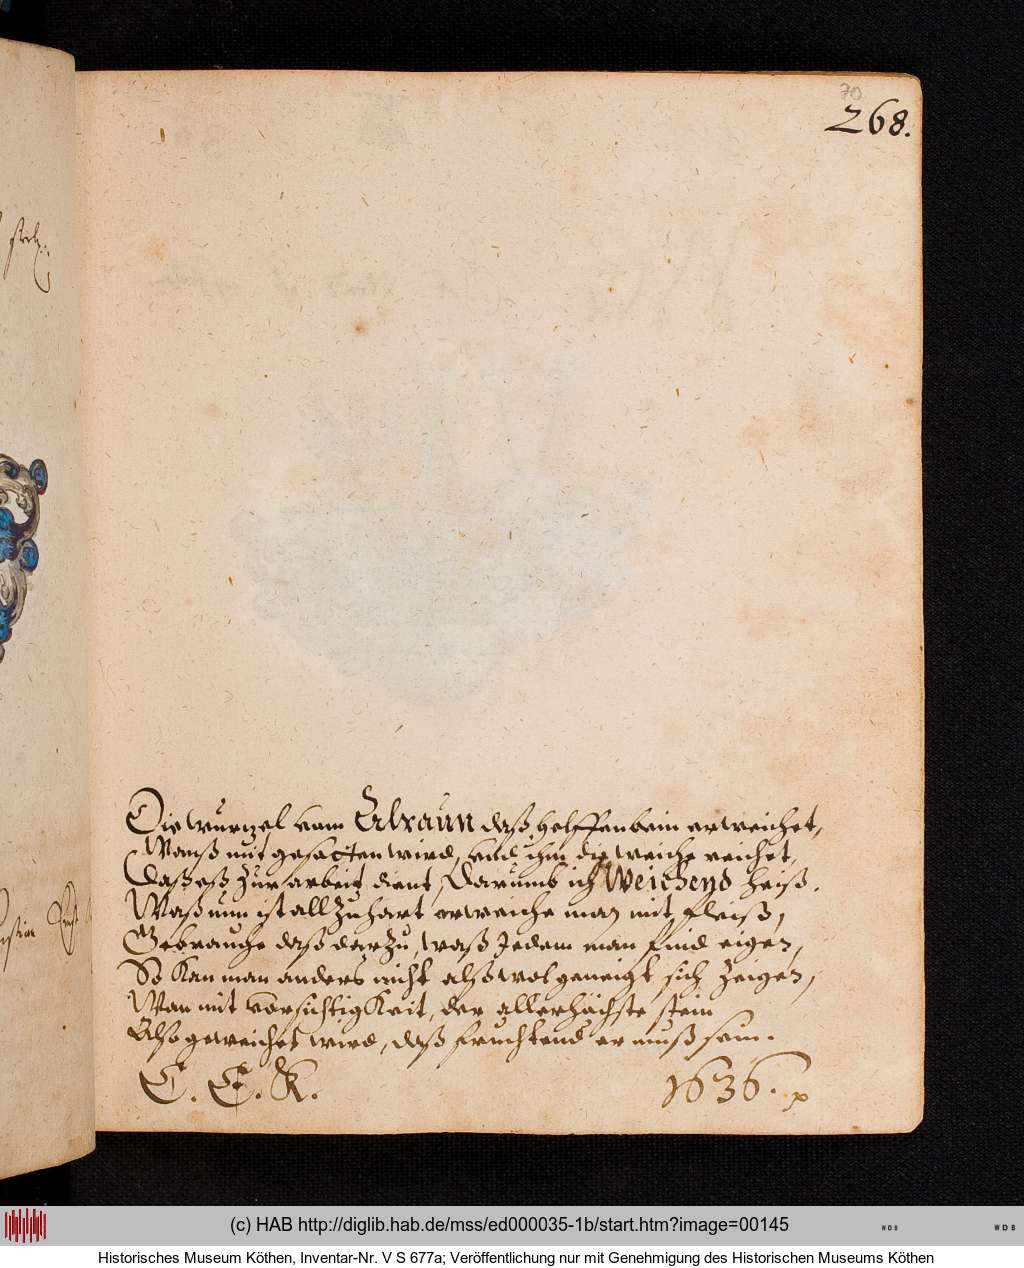 70
268.
Die wurtzel vom Alraun daß helffenbein erweichet,
Wanß mit gesotten wird, vnd ihm die weiche reichet,
Daß eß zur arbeitt dient, Darumb ich Weichend heiß.
Waß nun ist allzuhart erweiche man mit fleiß,
Gebrauche daß darzu, waß Jedem man find eigen,
So kan man anders nicht als wol geneigt sich zeigen,
Wan mit vorsichtigkeit, der allerhächste stein
Also geweichet wird, daß fruchtend er muß sein.
C. E. K. 1636.
(c) HAB http://diglib.hab.de/mss/ed000035-1b/start.htm?image=00145
WDB
WDB
Historisches Museum Köthen, Inventar-Nr. V S 677a; Veröffentlichung nur mit Genehmigung des Historischen Museums Köthen